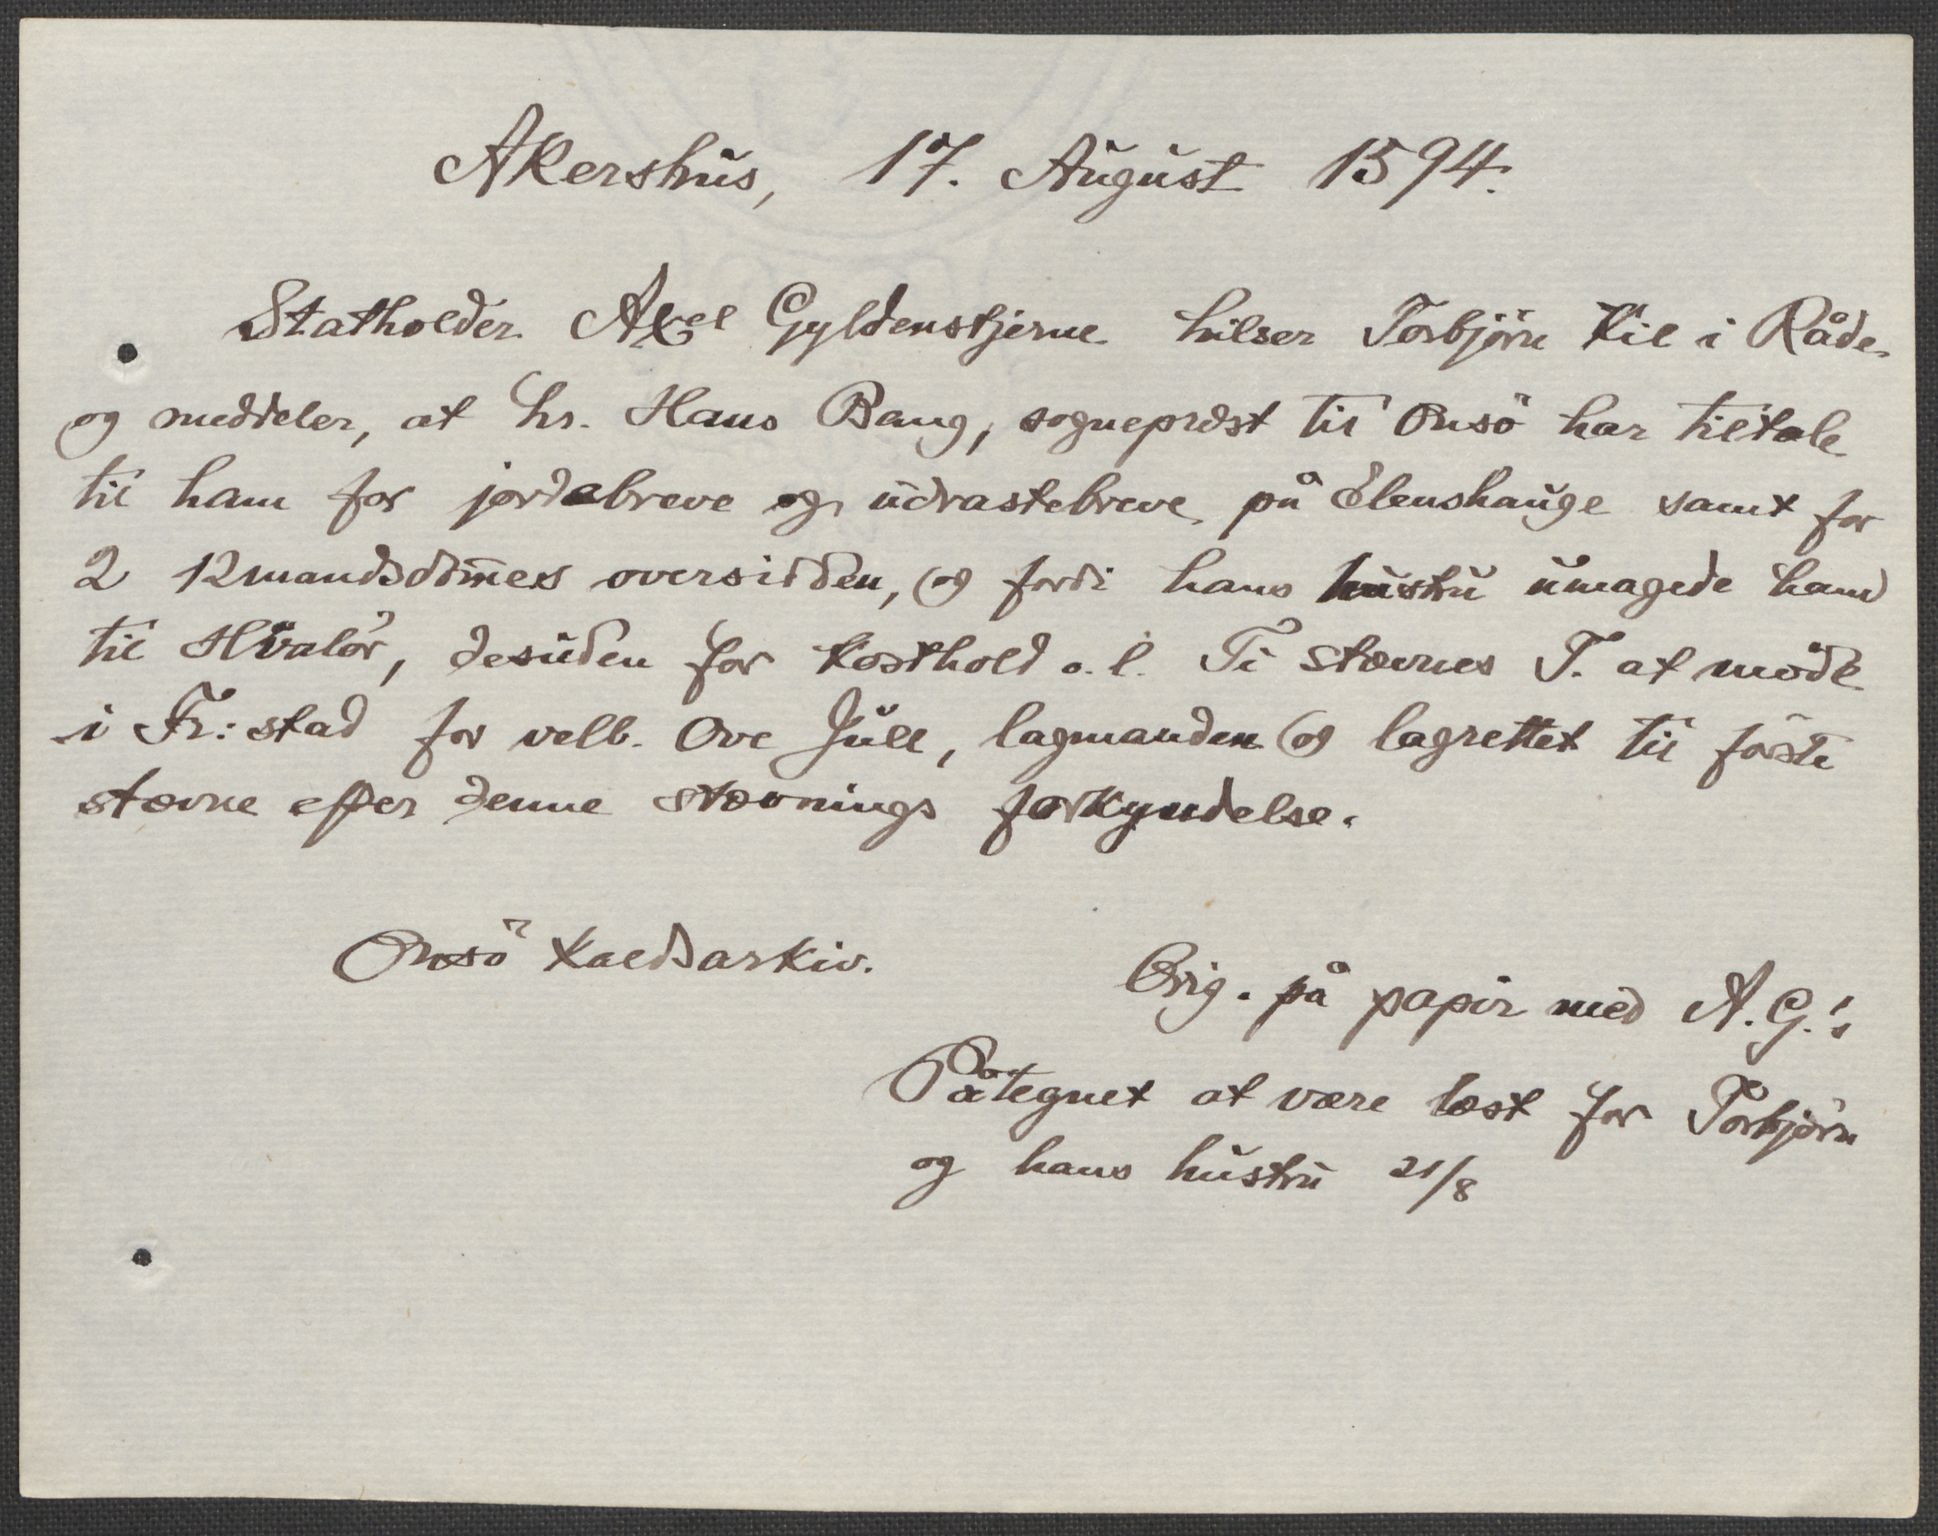 Akershus, 17. August 1594.
Statholder Axel Gyldenstjerne hilser Torbjörn Kil i Råde
og meddeler, at hr. Hans Bang, sogneprest til Onsö har tiltale
til ham for jordebreve og udrastebreve på Elenshauge samt for
2 12mandsdom̄es oversidden, og fordi hans hustru umagede ham
til Hvalör, desuden for kosthold o. l. Ti stævnes T. at møde
i Fr:stad for velb. Ove Juel, lagmanden og lagrettet til förste
stævne efter denne stævnings forkyndelse.
Onsö kaldsarkiv.
Orig. på papir med A. G.'s
Påtegnet at være læst for Torbjörn
og hans hustru 21/8